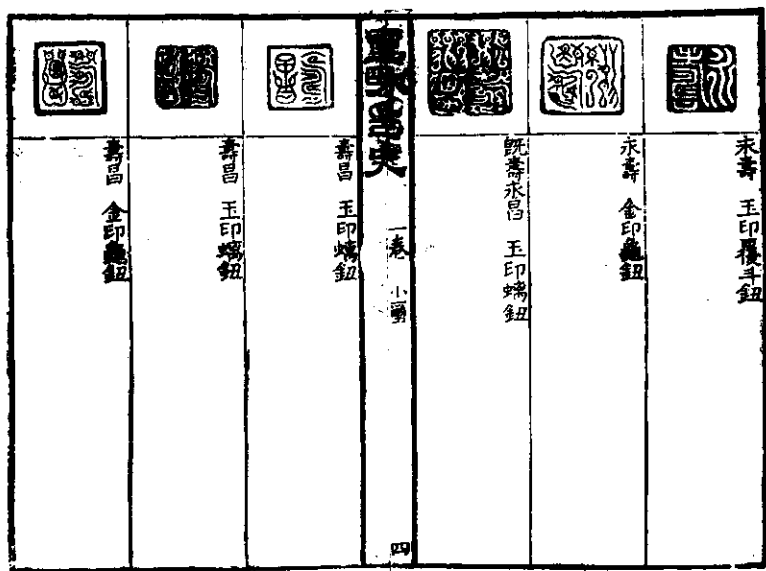 永壽 玉印覆斗鈕
永壽 金印龜鈕
既壽永昌 玉印螭鈕
一卷
四
壽昌 玉印螭鈕
壽昌 玉印螭鈕
壽昌 金印龜鈕